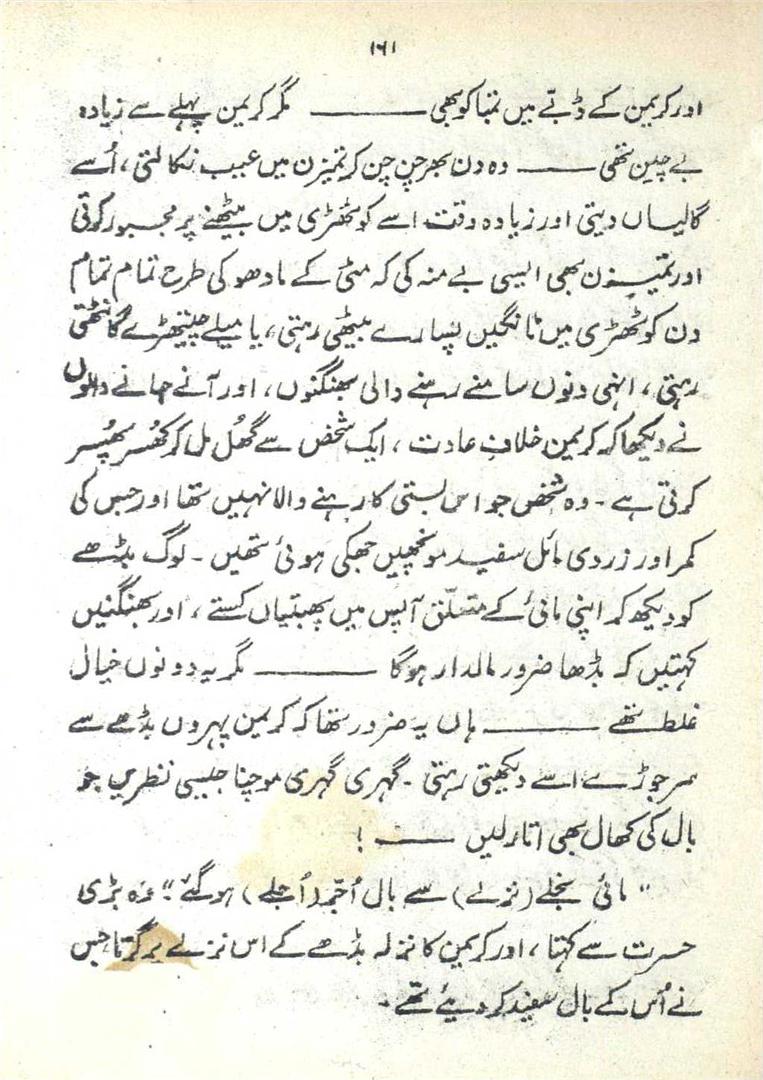 ۱۶۱
اور کریمن کے ڈبّے میں تمباکو بھی ——— مگر کریمن پہلے سے زیادہ
بے چین تھی ——— وہ دن بھر چن چن کر تمیزن میں عیب نکالتی، اُسے
گالیاں دیتی اور زیادہ وقت اسے کوٹھڑی میں بیٹھنے پر مجبور کرتی
اور تمیزن بھی ایسی بے منہ کی کہ مٹی کے مادھو کی طرح تمام تمام
دن کوٹھڑی میں ٹانگیں پسارے بیٹھی رہتی، یا میلے چیتھڑے گانٹھتی
رہتی، انہی دنوں سامنے رہنے والی بھنگنوں، اور آنے جانے والوں
نے دیکھا کہ کریمن خلافِ عادت، ایک شخص سے گھُل مل کر کھُسر پھُسر
کرتی ہے۔ وہ شخص جو اس بستی کا رہنے والا نہیں تھا اور جس کی
کمر اور زردی مائل سفید مونچھیں جھکی ہوئی تھیں۔ لوگ بڈھے
کو دیکھ کر اپنی مائی کے متعلّق آپس میں پھبتیاں کستے، اور بھنگنیں
کہتیں کہ بڈھا ضرور مالدار ہوگا ——— مگر یہ دونوں خیال
غلط تھے ——— ہاں یہ ضرور تھا کہ کریمن پہروں بڈھے سے
سر جوڑے اسے دیکھتی رہتی۔ گہری گہری موچنا جیسی نظریں جو
بال کی کھال بھی اتار لیں ——— !
"مائی نجلے (نزلے) سے بال اُجّر (اُجلے) ہوگئے"۔ وہ بڑی
حسرت سے کہتا، اور کریمن کا نزلہ بڈھے کے اس نزلے پر گرتا جس
نے اُس کے بال سفید کر دیئے تھے۔